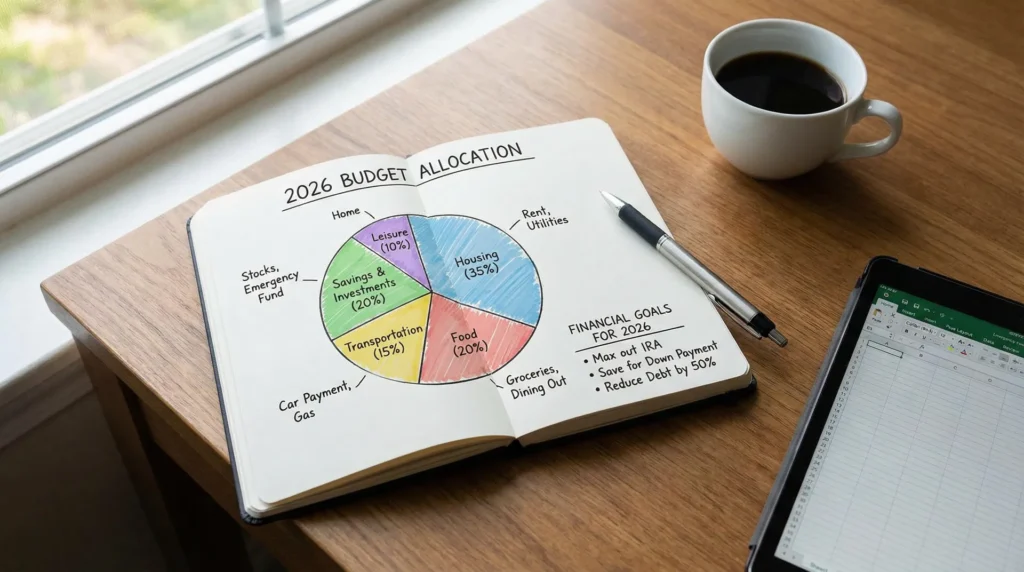 2026 BUDGET ALLOCATION
Home
Leisure
(10%)
Rent,
Utilities
Housing
(35%)
Stocks,
Emergency
Fund
Savings &
Investments
(20%)
Transportation
(15%)
Food
(20%)
Car Payment,
Gas
Groceries,
Dining Out
FINANCIAL GOALS
FOR 2026
• Max out IRA
• Save for Down Payment
• Reduce Debt by 50%